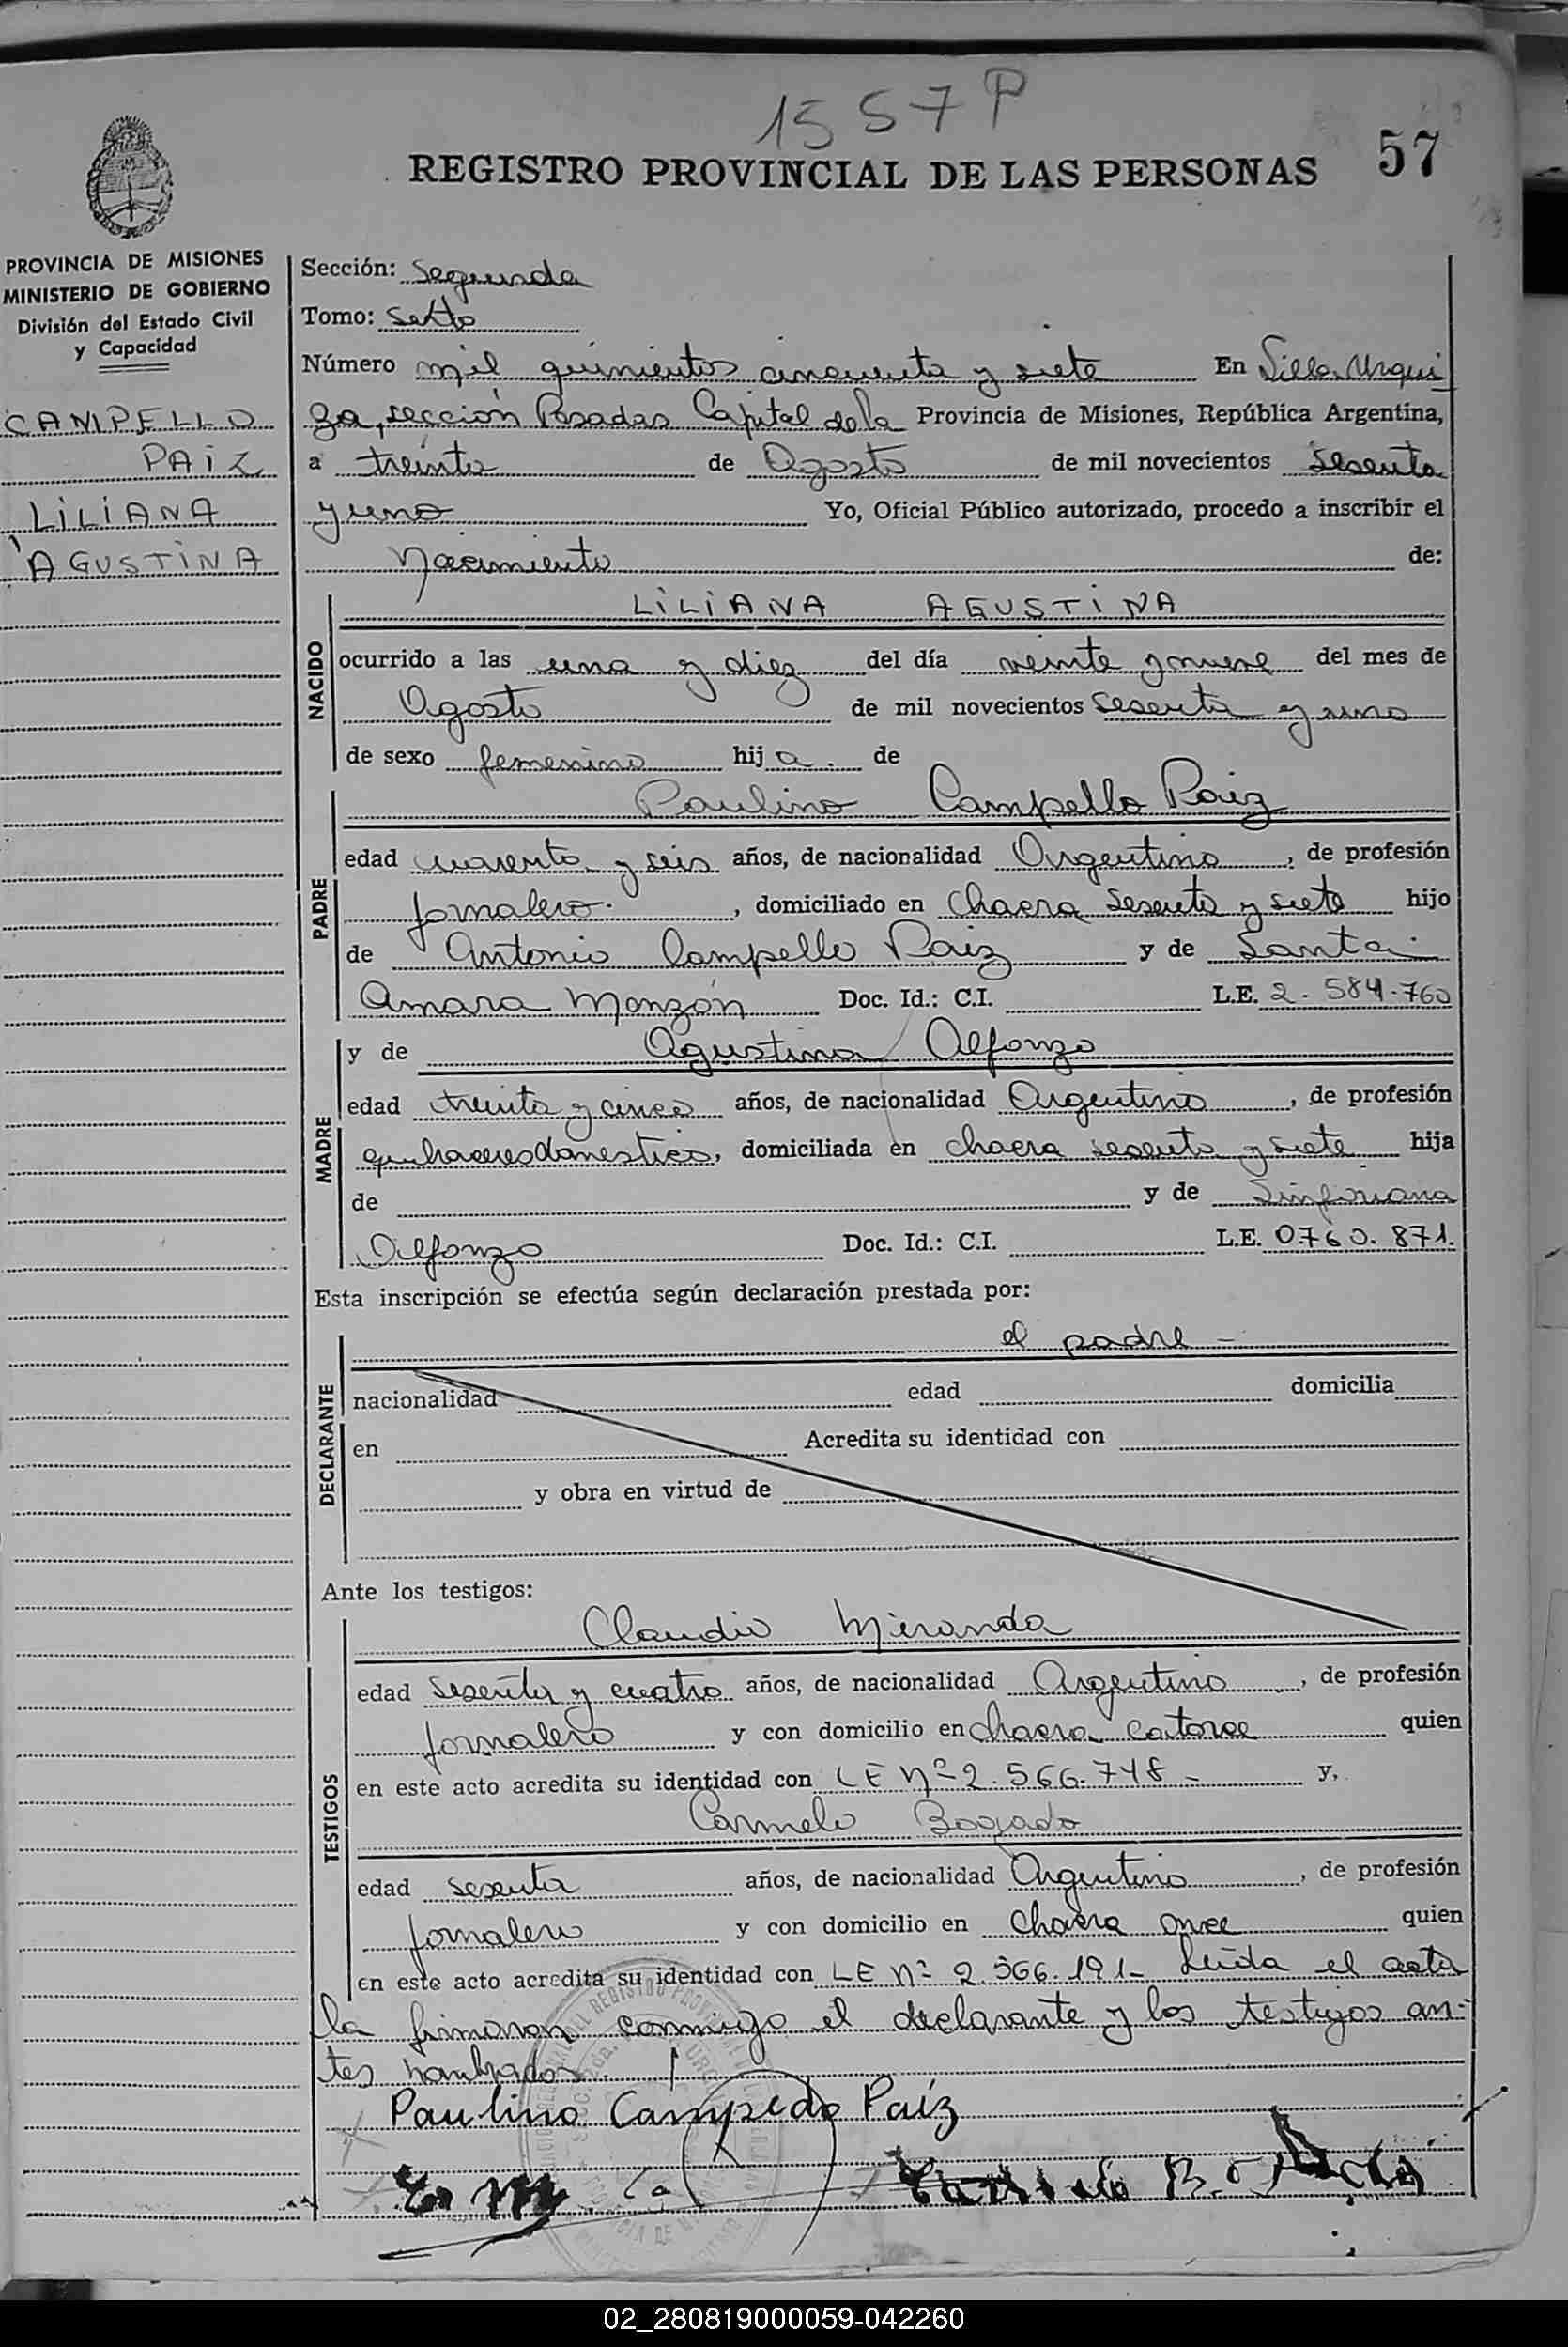 1557P
REGISTRO PROVINCIAL DE LAS PERSONAS 57
PROVINCIA DE MISIONES
MINISTERIO DE GOBIERNO
División del Estado Civil
y Capacidad
CAMPELLO
PAIZ
LILIANA
AGUSTINA
Sección: Segunda
Tomo: Sexto
Número mil quinientos cincuenta y siete En Villa Urqui
za, sección Posadas Capital de la Provincia de Misiones, República Argentina,
a treinta de Agosto de mil novecientos sesenta
y uno Yo, Oficial Público autorizado, procedo a inscribir el
Nacimiento de:
NACIDO
LILIANA AGUSTINA
ocurrido a las una y diez del día veinte y nueve del mes de
Agosto de mil novecientos sesenta y uno
de sexo femenino hij a. de
PADRE
Paulino Campello Paiz
edad cuarenta y seis años, de nacionalidad Argentino, de profesión
jornalero. , domiciliado en chacra sesenta y siete hijo
de Antonio Campello Paiz y de Santa
Amara Monzón Doc. Id.: C.I. L.E. 2.584.760
MADRE
y de Agustina Alfonzo
edad treinta y cinco años, de nacionalidad Argentina, de profesión
quehaceres domestico, domiciliada en chacra sesenta y siete hija
de y de Sinforiana
Alfonzo Doc. Id.: C.I. L.E. 0760.871.
Esta inscripción se efectúa según declaración prestada por:
DECLARANTE
el padre -
nacionalidad edad domicilia
en Acredita su identidad con
y obra en virtud de
Ante los testigos:
TESTIGOS
Claudio Miranda
edad sesenta y cuatro años, de nacionalidad Argentino, de profesión
jornalero y con domicilio en chacra catorce quien
en este acto acredita su identidad con LE Nº 2.566.748- y,
Carmelo
edad sesenta años, de nacionalidad Argentino, de profesión
jornalero y con domicilio en chacra once quien
en este acto acredita su identidad con LE Nº 2.566.191- Leida el acta
la firmaron conmigo el declarante y los testigos an-
tes nombrados.
Paulino Campello Paíz
02_280819000059-042260